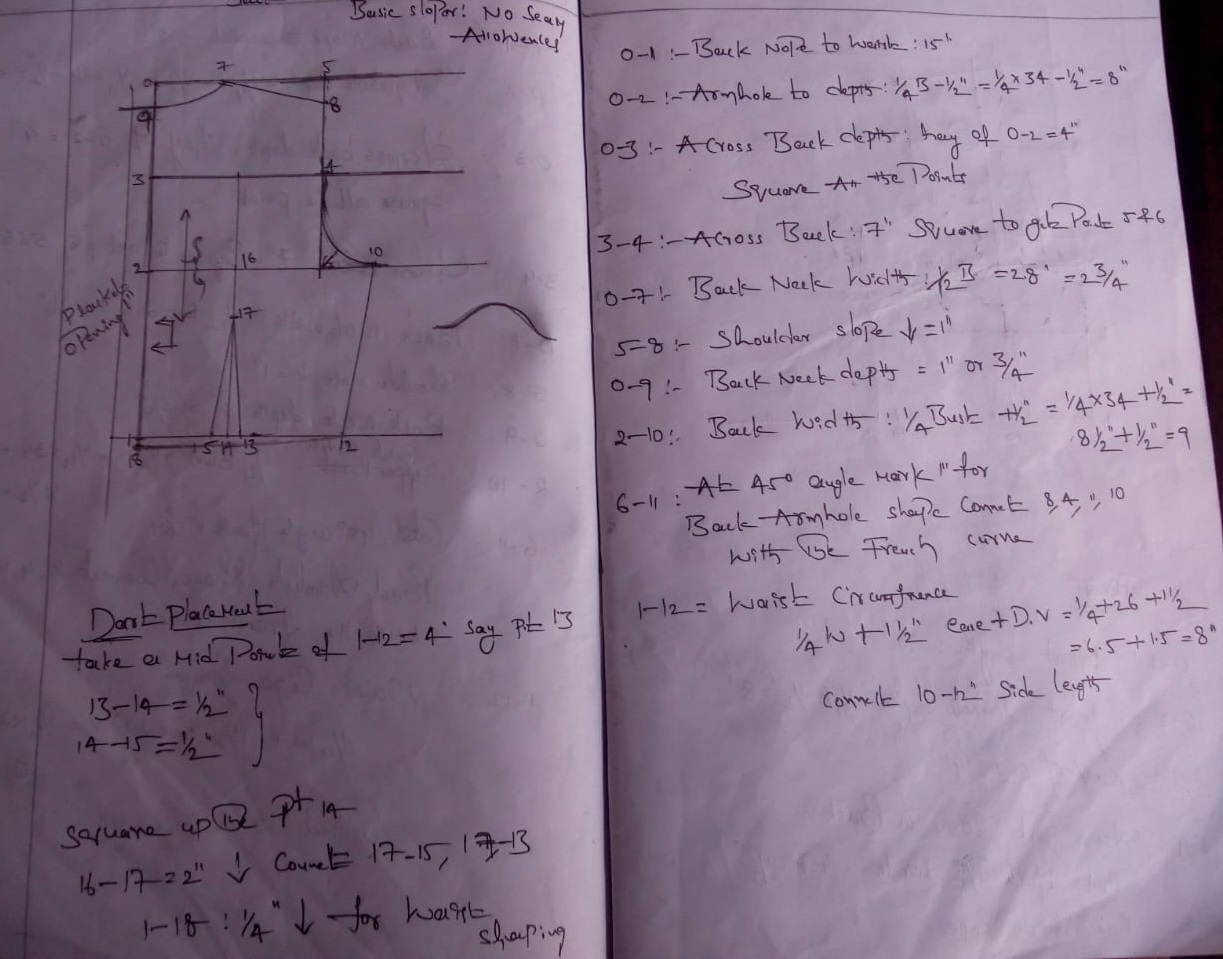 Basic sloper: No Seam
Allowences
7
5
0
8
9
4
3
2
16
6
10
17
Placket
opening 1"
1
15 14 13
12
18
Dart Placement
take a Mid Point of 1-12 = 4" say pt 13
13-14 = 1/2"
14-15 = 1/2"
square up the pt 14
16-17 = 2" ↓ Connect 17-15, 17-13
1-18 : 1/4" ↓ for Waist
shaping
0-1 :- Back Nape to waist : 15"
0-2 :- Armhole to depth : 1/4 B - 1/2" = 1/4 x 34 - 1/2" = 8"
0-3 :- Across Back depth : of 0-2 = 4"
Square All the Points
3-4 :- Across Back : 7" Square to get Point 5 & 6
0-7 :- Back Neck Width : 1/12 B = 2.8" = 2 3/4"
5-8 :- Shoulder slope ↓ = 1"
0-9 :- Back Neck depth = 1" or 3/4"
2-10 :- Back Width : 1/4 Bust + 1/2" = 1/4 x 34 + 1/2" =
8 1/2" + 1/2" = 9
6-11 : At 45° angle Mark 1" for
Back Armhole shape Connect 8, 4, 11, 10
with the French curve
1-12 = Waist Circumfrence
1/4 W + 1 1/2" ease + D.V = 1/4 + 26 + 1 1/2
= 6.5 + 1.5 = 8"
Connect 10-12" Side length